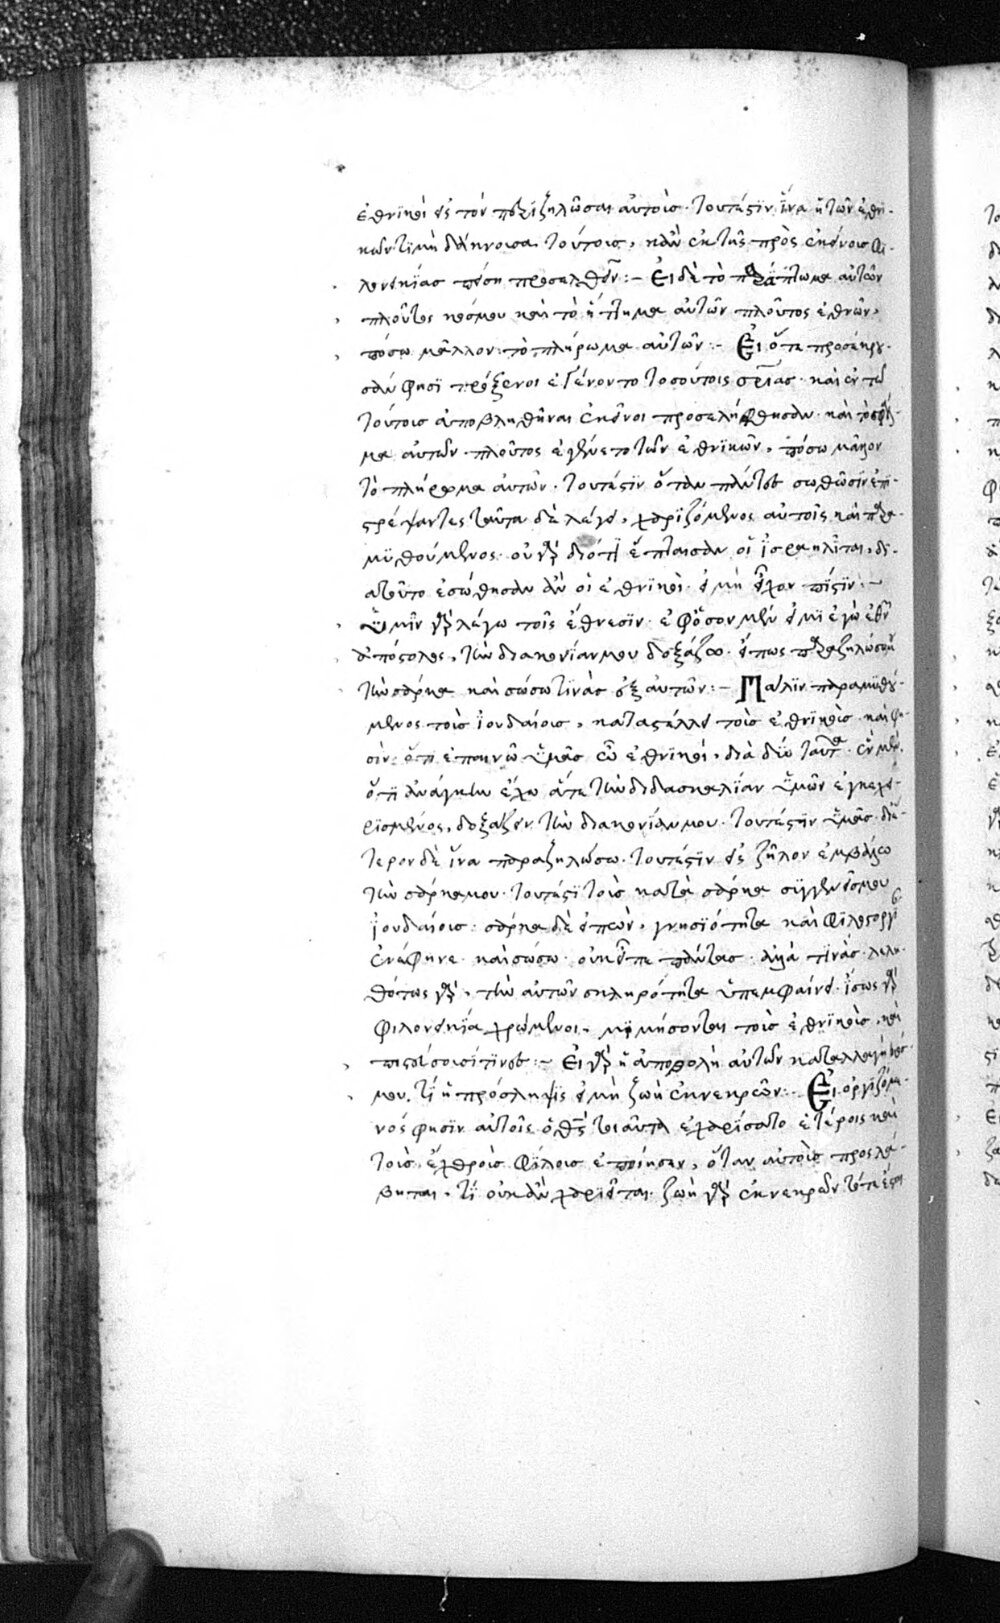 ἐθνικοὶ εἰς τὸν παραζηλῶσαι αὐτοὺς· τουτέστιν ἵνα ἡ τῶν ἐθνι-
κῶν τιμὴ δάκνουσα τούτους, κἂν ἐκ τῆς πρὸς ἐκείνους φι-
λονεικίας πείση προσελθεῖν:- Εἰ δὲ τὸ παράπτωμα αὐτῶν
πλοῦτος κόσμου καὶ τὸ ἥττημα αὐτῶν πλοῦτος ἐθνῶν,
πόσω μᾶλλον τὸ πλήρωμα αὐτῶν:- Εἰ ὅτε προσέκρου-
σαν φησὶ πρόξενοι ἐγένοντο τοσούτοις σωτηρίας· καὶ ἐν τῶ
τούτους ἀποβληθῆναι ἐκεῖνοι προσελήφθησαν· καὶ τὸ
μα αὐτῶν πλοῦτος ἐγένετο τῶν ἐθνικῶν, πόσω μᾶλλον
τὸ πλήρωμα αὐτῶν· τουτέστιν ὅταν πάντες σωθῶσιν ἐπι-
στρέψαντες ταῦτα δὲ λέγει, χαριζόμενος αὐτοῖς καὶ παρα-
μυθούμενος· οὐ γὰρ διότι ἔπταισαν οἱ ἰσραηλῖται, δι-
ὰ τοῦτο ἐσώθησαν ἂν οἱ ἐθνικοὶ· εἰ μὴ εἶχον πίστιν:-
Ὑμῖν γὰρ λέγω τοῖς ἔθνεσιν· ἐφ' ὅσον μέν εἰμι ἐγὼ ἐθνῶν
ἀπόστολος, τὴν διακονίαν μου δοξάζω· εἴπως παραζηλώσω μου
τὴν σάρκα καὶ σώσω τινὰς ἐξ αὐτῶν:- Πάλιν παραμυθού-
μενος τοὺς ἰουδαίους, καταστέλλει τοὺς ἐθνικοὺς· καὶ φη-
σὶν· ὅτι ἐπαινῶ ὑμᾶς ὦ ἐθνικοὶ, διὰ δύο ταῦτα· ἓν μὲν,
ὅτι ἀνάγκην ἔχω ἅτε τὴν διδασκαλίαν ὑμῶν ἐγκεχει-
ρισμένος, δοξάζειν τὴν διακονίαν μου· τουτέστιν ὑμᾶς· δεύ-
τερον δὲ ἵνα παραζηλώσω· τουτέστιν εἰς ζῆλον ἐμβάλω
τὴν σάρκα μου· τουτέστι τοὺς κατὰ σάρκα συγγενεῖς μου
ἰουδαίους· σάρκα δὲ εἰπὼν, γνησιότητα καὶ φιλοστοργί
ἐνέφηνε· καὶ σώσω· οὐκ εἶπε πάντας· ἀλλὰ τινὰς· λελη-
θότως γὰρ, τὴν αὐτῶν σκληρότητα ὑπεμφαίνει· ἴσως γὰρ
φιλονεικία χρώμενοι, μιμήσονται τοὺς ἐθνικοὺς, καὶ
πιστεύσουσί τινες:- Εἰ γὰρ ἡ ἀποβολὴ αὐτῶν καταλλαγὴ κόσ-
μου, τί ἡ πρόσληψις εἰ μὴ ζωὴ ἐκ νεκρῶν:- Εἰ ὀργιζόμε-
νός φησιν αὐτοῖς ὁ θεὸς τοιαῦτα ἐχαρίσατο ἑτέροις καὶ
τοὺς ἐχθροὺς φίλους ἐποίησεν, ὅταν αὐτοὺς προσλά-
βηται, τί οὐκ ἂν χαριεῖται· ζωὴ γὰρ ἐκ νεκρῶν